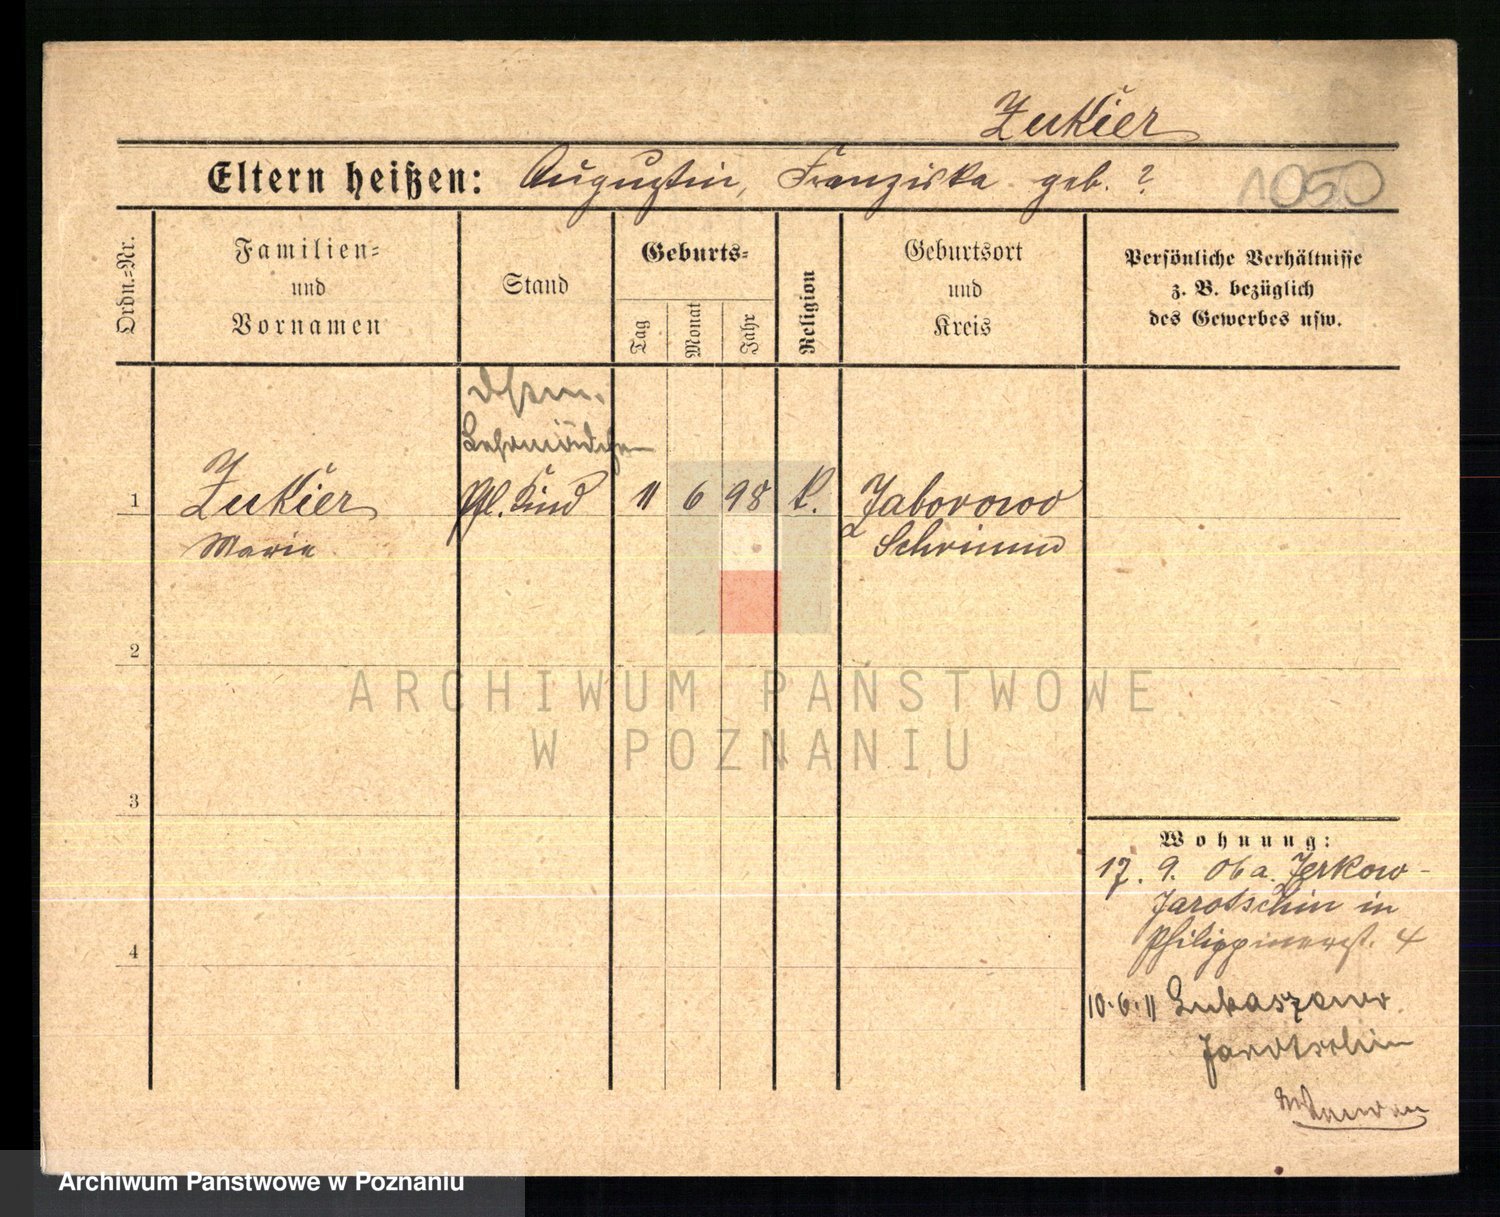 Zukier
Eltern heißen: Augustin, Franziska geb. ?
1050
Ordn.-Nr.
Familien-
und
Vornamen
Stand
Geburts-
Tag
Monat
Jahr
Religion
Geburtsort
und
Kreis
Persönliche Verhältnisse
z. B. bezüglich
des Gewerbes usw.
Lehrmädchen
1 Zukier Pfl. Kind 11 6 98 k. Jaborowo
Marie Schrimm
2
ARCHIWUM PAŃSTWOWE
W POZNANIU
3
Wohnung:
17. 9. 06 a. Jerkow-
Jarotschin in
Philippinerst. 4
4
10.6.11 Lukaszewo
Jarotschin
Archiwum Państwowe w Poznaniu